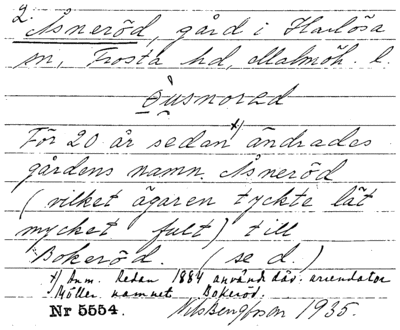 2.
Åsneröd, gård i Harlösa
sn, Frosta hd, Malmöh. l.
För 20 år sedan x) ändrades
gårdens namn. Åsneröd
(vilket ägaren tyckte lät
mycket fult) till
Bokeröd. (se d.)
x) Anm. Redan 1884 använd däv. arrendator
Möller namnet Bokeröd.
Nr 5554. Nils Bengtsson 1935.